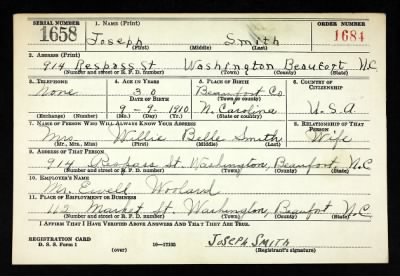 SERIAL NUMBER 1. NAME (Print) ORDER NUMBER
1658 Joseph Smith 1684
(First) (Middle) (Last)
2. ADDRESS (Print)
914 Respass St. Washington Beaufort N.C
(Number and street or R. F. D. number) (Town) (County) (State)
3. TELEPHONE 4. AGE IN YEARS 5. PLACE OF BIRTH 6. COUNTRY OF CITIZENSHIP
None 30 Beaufort Co
DATE OF BIRTH (Town or county)
9-9-1910 N. Carolina U.S.A
(Exchange) (Number) (Mo.) (Day) (Yr.) (State or country)
7. NAME OF PERSON WHO WILL ALWAYS KNOW YOUR ADDRESS 8. RELATIONSHIP OF THAT PERSON
Mrs. Willie Belle Smith Wife
(Mr., Mrs., Miss) (First) (Middle) (Last)
9. ADDRESS OF THAT PERSON
914 Respass St. Washington Beaufort, N.C
(Number and street or R. F. D. number) (Town) (County) (State)
10. EMPLOYER'S NAME
Mr. Ewell Woolard
11. PLACE OF EMPLOYMENT OR BUSINESS
112 Market St. Washington Beaufort N.C
(Number and street or R. F. D. number) (Town) (County) (State)
I AFFIRM THAT I HAVE VERIFIED ABOVE ANSWERS AND THAT THEY ARE TRUE.
REGISTRATION CARD
D. S. S. Form 1 16—17105 Joseph Smith
(over) (Registrant's signature)